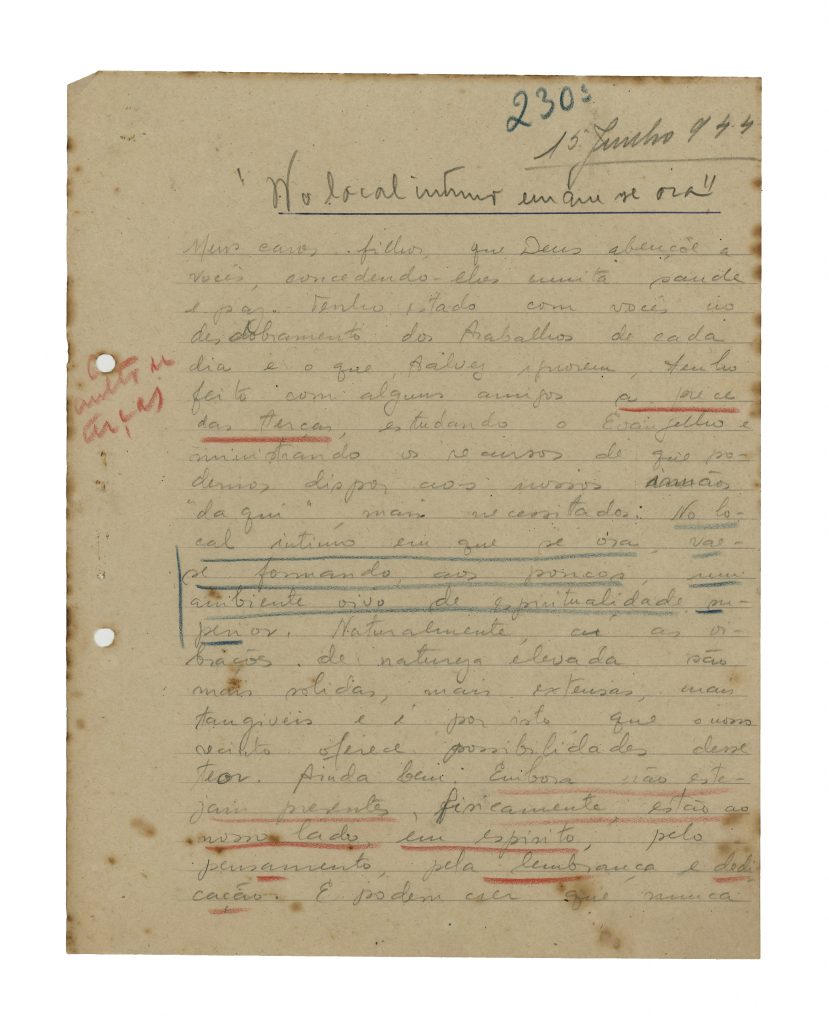 230
15 Junho 944
"No local intimo em que se ora"
Meus caros filhos, que Deus abençôe a
vocês, concedendo-lhes muita saude
e paz. Tenho estado com vocês no
desdobramento dos trabalhos de cada
dia e o que, talvez ignorem, tenho
feito com alguns amigos a prece
das terças, estudando o Evangelho e
ministrando os recursos de que po-
demos dispor aos nossos irmãos
"daqui", mais necessitados. No lo-
cal intimo em que se óra, vae-
se formando, aos poucos, um
ambiente vivo de espiritualidade su-
perior. Naturalmente, as vi-
brações de natureza elevada são
mais solidas, mais extensas, mais
tangiveis e é por isto que o nosso
recinto oferece possibilidades desse
teor. Ainda bem. Embora não este-
jam presentes, fisicamente, estão ao
nosso lado, em espirito, pelo
pensamento, pela lembrança e dedi-
cação. E podem crer que nunca
culto
terças